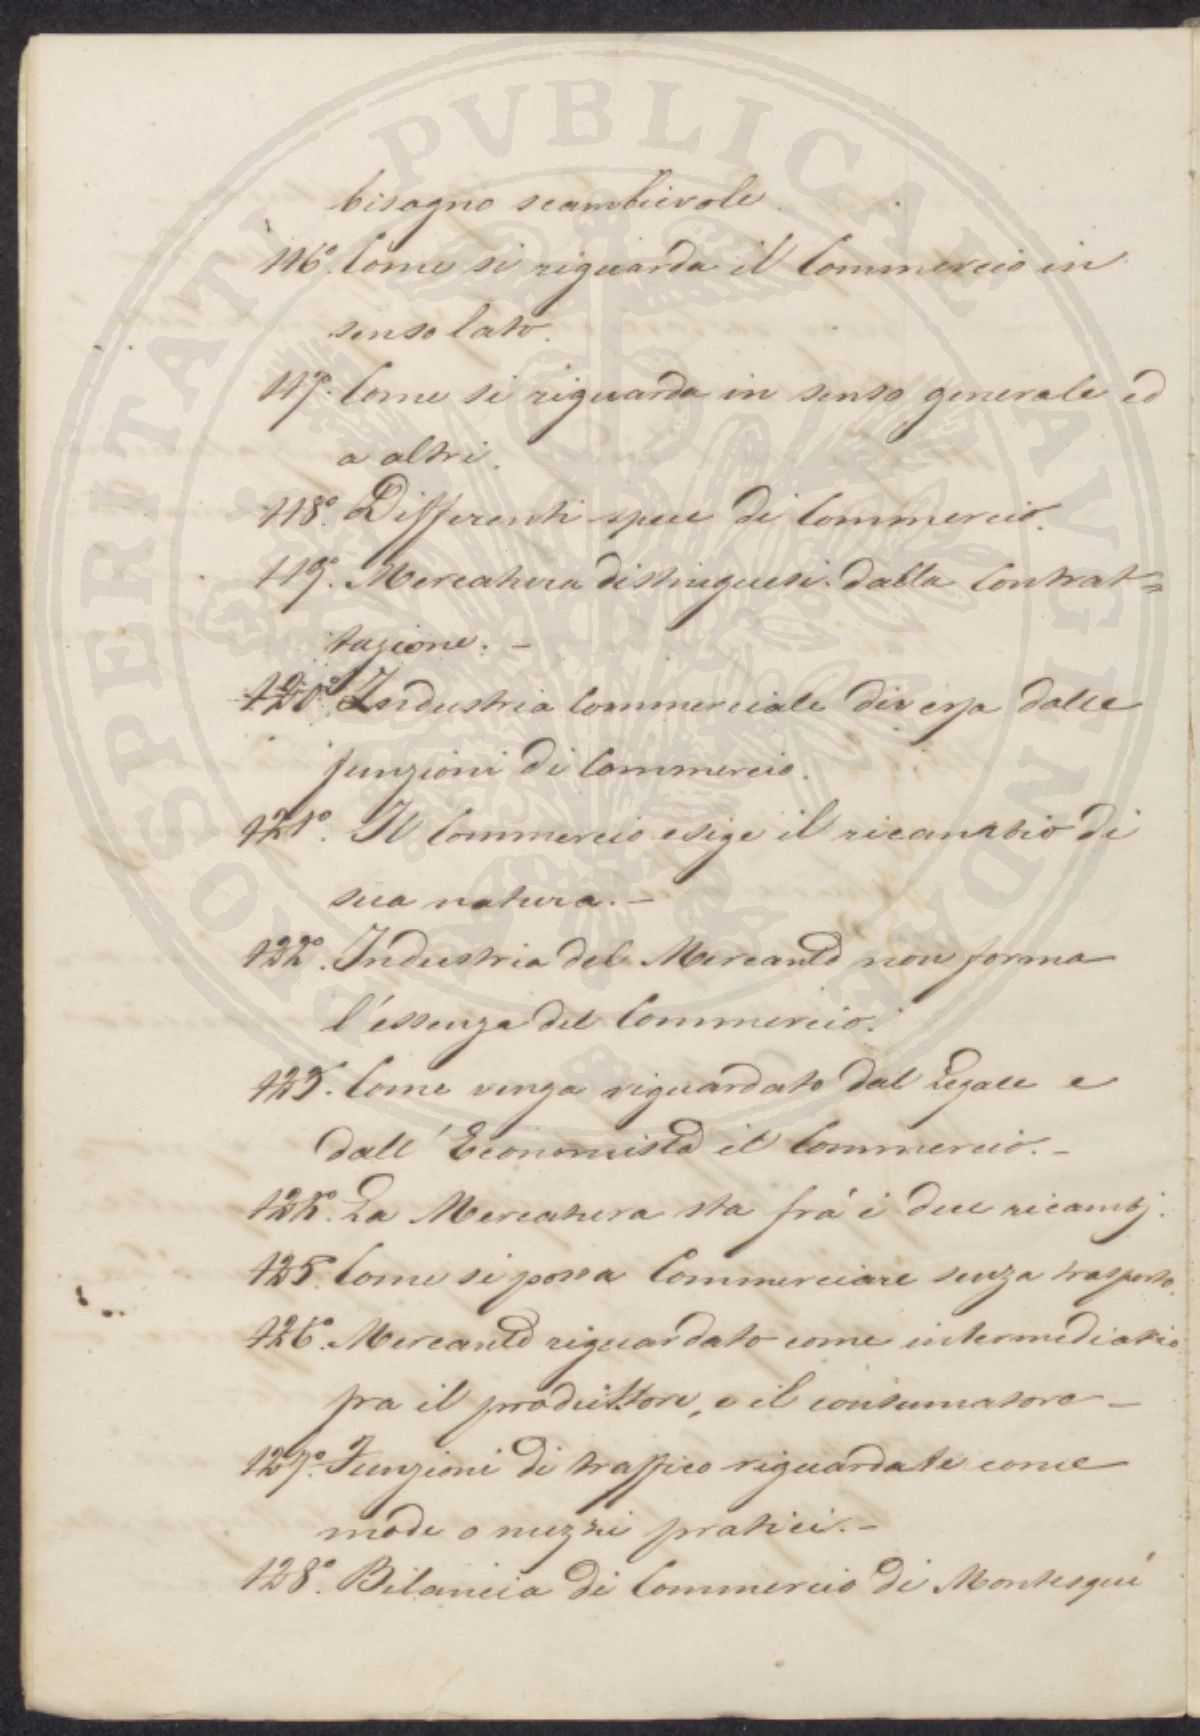 PROSPERITATI PVBLICAE AVGENDAE
bisogno scambievole.
116°. Come si riguarda il Commercio in
senso lato.
117°. Come si riguarda in senso generale ed
a altri.
118°. Differenti specie di Commercio.
119°. Mercatura distinguesi dalla Contrat=
tazione. –
120°. Industria Commerciale diversa dalle
funzioni di Commercio.
121°. Il Commercio esige il ricambio di
sua natura. –
122°. Industria del Mercante non forma
l'essenza del Commercio.
123°. Come venga riguardato dal Legale e
dall'Economista il Commercio. –
124°. La Mercatura sta frà i due ricambj.
125°. Come si possa Commerciare senza trasporto.
126°. Mercante riguardato come intermediario
fra il produttore, e il consumatore –
127°. Funzioni di traffico riguardate come
mode o mezzi pratici. –
128°. Bilancia di Commercio di Montesquì